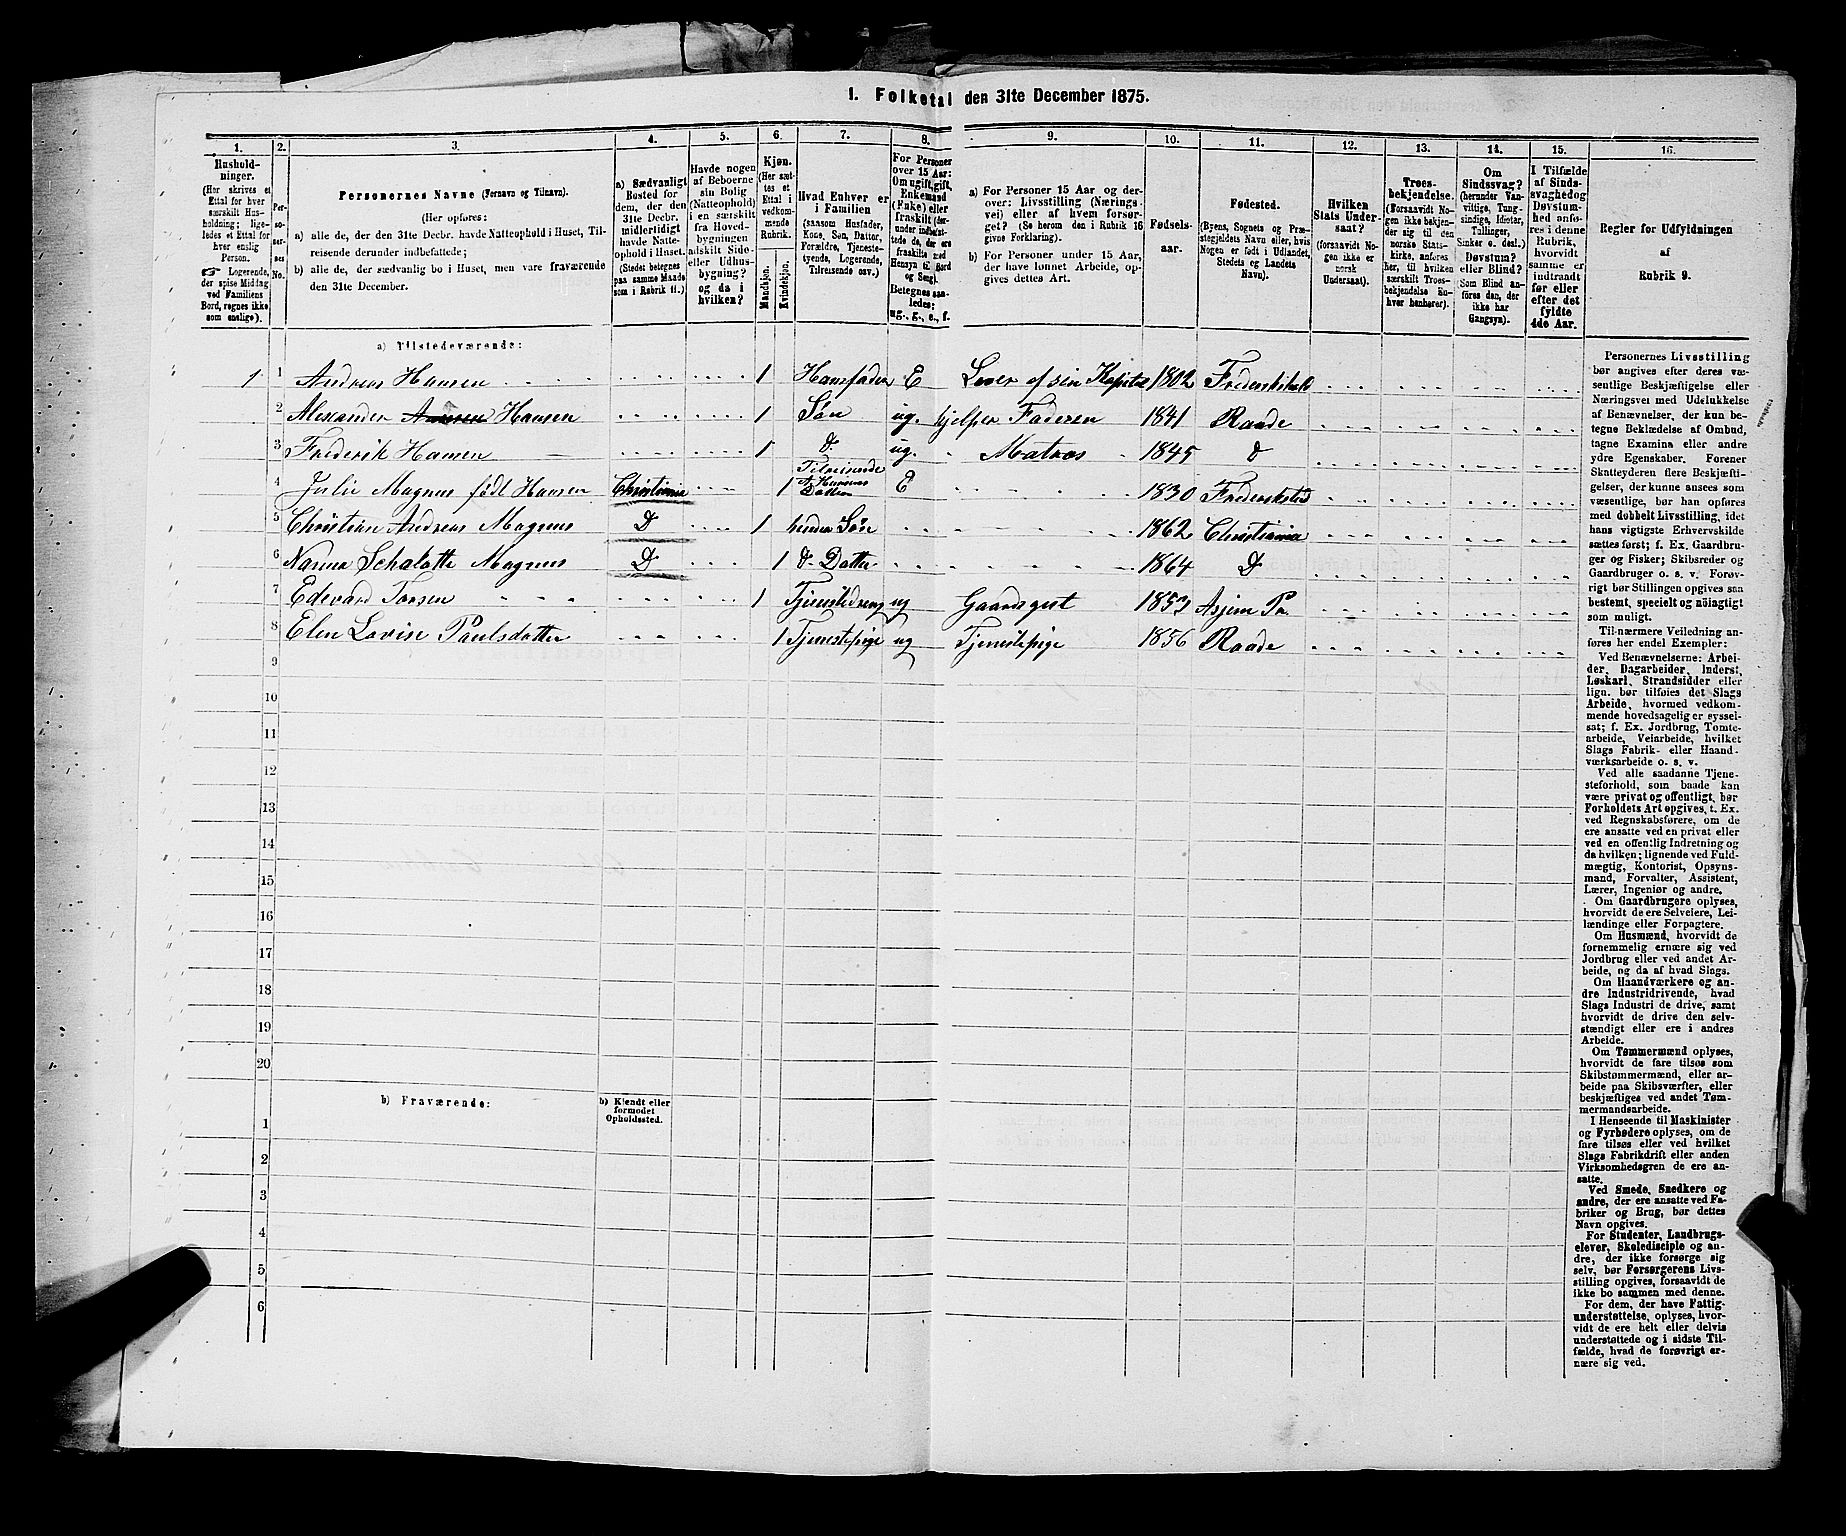 1. Folketal den 31te December 1875.
1. 2. 3. 4. 5. 6. 7. 8. 9. 10. 11. 12. 13. 14. 15. 16.
Hushold-
ninger.
(Her skrives et
Ettal for hver
særskilt Hus-
holdning; lige-
ledes et Ettal for
hver enslig
Person.
☞ Logerende,
der spise Middag
ved Familiens
Bord, regnes ikke
som enslige).
Per-
so-
ner-
nes
No.
Personernes Navne (Fornavn og Tilnavn).
(Her opføres:
a) alle de, der den 31te Decbr. havde Natteophold i Huset, Til-
reisende derunder indbefattede;
b) alle de, der sædvanlig bo i Huset, men vare fraværende
den 31te December.
a) Sædvanligt
Bosted for
dem, der den
31te Decbr.
midlertidigt
havde Natte-
ophold i Huset.
(Stedet betegnes
paa samme Maade
som i Rubrik 11.)
Havde nogen
af Beboerne
sin Bolig
(Natteophold)
i en særskilt
fra Hoved-
bygningen
adskilt Side-
eller Udhus-
bygning?
og da i
hvilken?
Kjøn.
(Her sæt-
tes et
Ettal i
vedkom-
mende
Rubrik.
Mandkjøn.
Kvindekjøn.
Hvad Enhver er
i Familien
(saasom Husfader,
Kone, Søn, Datter,
Forældre, Tjeneste-
tyende, Logerende,
Tilreisende osv.)
For Personer
over 15 Aar:
Om ugift, gift,
Enkemand
(Enke) eller
fraskilt (der-
under indbefat-
tede de, der ere
fraskilte med
Hensyn til Bord
og Seng).
Betegnes saa-
ledes:
ug., g., e., f.
a) For Personer 15 Aar og der-
over: Livsstilling (Nærings-
vei) eller af hvem forsør-
get? (Se herom den i Rubrik 16
givne Forklaring).
b) For Personer under 15 Aar,
der have lønnet Arbeide, op-
gives dettes Art.
Fødsels-
aar.
Fødested.
(Byens, Sognets og Præ-
stegjeldets Navn eller, hvis
Nogen er født i Udlandet,
Stedets og Landets
Navn).
Hvilken
Stats Under-
saat?
(forsaavidt No-
gen ikke er
norsk
Undersaat).
Troes-
bekjendelse.
(Forsaavidt No-
gen ikke bekjen-
der sig til den
norske Stats-
kirke, anføres
her, til hvilken
særskilt Troes-
bekjendelse En-
hver henhører).
Om
Sindssvag?
(herunder Van-
vittige, Tung-
sindige, Idioter,
Tullinger,
Sinker o. desl.)
Døvstum?
eller Blind?
(Som Blind an-
føres den, der
ikke har
Gangsyn).
I Tilfælde
af Sinds-
svaghed og
Døvstum-
hed anfø-
res i denne
Rubrik,
hvorvidt
samme er
indtraadt
før eller
efter det
fyldte
4de Aar.
Regler for Udfyldningen
af
Rubrik 9.
a) Tilstedeværende:
1 1 Andreas Hansen 1 Husfader E Lever af sin Kapital 1802 Frederikshald
2 Alexander Hansen 1 Søn ug. hjelper Faderen 1841 Raade
3 Frederik Hansen 1 d. ug. Matros 1845 d
4 Julie Magnus født Hansen Christiania 1 Tilreisende A. Hansens Datter E 1830 Frederiksstad
5 Christian Andreas Magnus D 1 hendes Søn 1862 Christiania
6 Nanna Schalotte Magnus D 1 d. Datter 1864 D
7 Edevard Torsen 1 Tjenestedreng ug Gaardsgut Asjim Pr.
8 Elen Lovise Paulsdatter 1 Tjenestepige ug Tjenestepige 1856 Raade
9
10
11
12
13
14
15
16
17
18
19
20
b) Fraværende:
b) Kjendt eller
formodet
Opholdssted.
1
2
3
4
5
6
Personernes Livsstilling
bør angives efter deres væ-
sentlige Beskjæftigelse eller
Næringsvei med Udelukkelse
af Benævnelser, der kun be-
tegne Beklædelse af Ombud,
tagne Examina eller andre
ydre Egenskaber. Forener
Skatteyderen flere Beskjæfti-
gelser, der kunne ansees som
væsentlige, bør han opføres
med dobbelt Livsstilling, idet
hans vigtigste Erhvervskilde
sættes først; f. Ex. Gaardbru-
ger og Fisker; Skibsreder og
Gaardbruger o. s. v. Forøv-
rigt bør Stillingen opgives saa
bestemt, specielt og nøiagtigt
som muligt.
Til nærmere Veiledning an-
føres her endel Exempler:
Ved Benævnelserne: Arbei-
der, Dagarbeider, Inderst,
Løskarl, Strandsidder eller
lign. bør tilføies det Slags
Arbeide, hvormed vedkom-
mende hovedsagelig er syssel-
sat; f. Ex. Jordbrug, Tomte-
arbeide, Veiarbeide, hvilket
Slags Fabrik- eller Haand-
værksarbeide o. s. v.
Ved alle saadanne Tjene-
steforhold, som baade kan
være privat og offentligt, bør
Forholdets Art opgives, t. Ex.
ved Regnskabsførere, om de
ere ansatte ved en privat eller
ved en offentlig Indretning og
da hvilken; lignende ved Fuld-
mægtig, Kontorist, Opsyns-
mand, Forvalter, Assistent,
Lærer, Ingeniør og andre.
Om Gaardbrugere oplyses,
hvorvidt de ere Selveiere, Lei-
lændinge eller Forpagtere.
Om Husmænd, hvorvidt de
fornemmelig ernære sig ved
Jordbrug eller ved andet Ar-
beide, og da af hvad Slags.
Om Haandværkere og an-
dre Industridrivende, hvad
Slags Industri de drive, samt
hvorvidt de drive den selv-
stændigt eller ere i andres
Arbeide.
Om Tømmermænd oplyses,
hvorvidt de fare tilsøs som
Skibstømmermænd, eller ar-
beide paa Skibsværfter, eller
beskjæftiges ved andet Tøm-
mermandsarbeide.
I Henseende til Maskinister
og Fyrbødere oplyses, om de
fare tilsøs eller ved hvilket
Slags Fabrikdrift eller anden
Virksomhedsgren de ere an-
satte.
Ved Smede, Snedkere og
andre, der ere ansatte ved Fa-
briker og Brug, bør dettes
Navn opgives.
For Studenter, Landbrugs-
elever, Skoledisciple og an-
dre, der ikke forsørge sig
selv, bør Forsørgerens Livs-
stilling opgives, forsaavidt de
ikke bo sammen med denne.
For dem, der have Fattig-
understøttelse, oplyses, hvor-
vidt de ere helt eller delvis
understøttede og i sidste Til-
fælde, hvad de forøvrigt er-
nære sig ved.